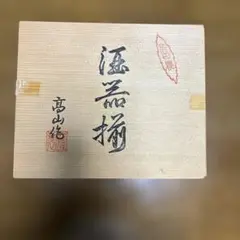 酒器揃
高山作